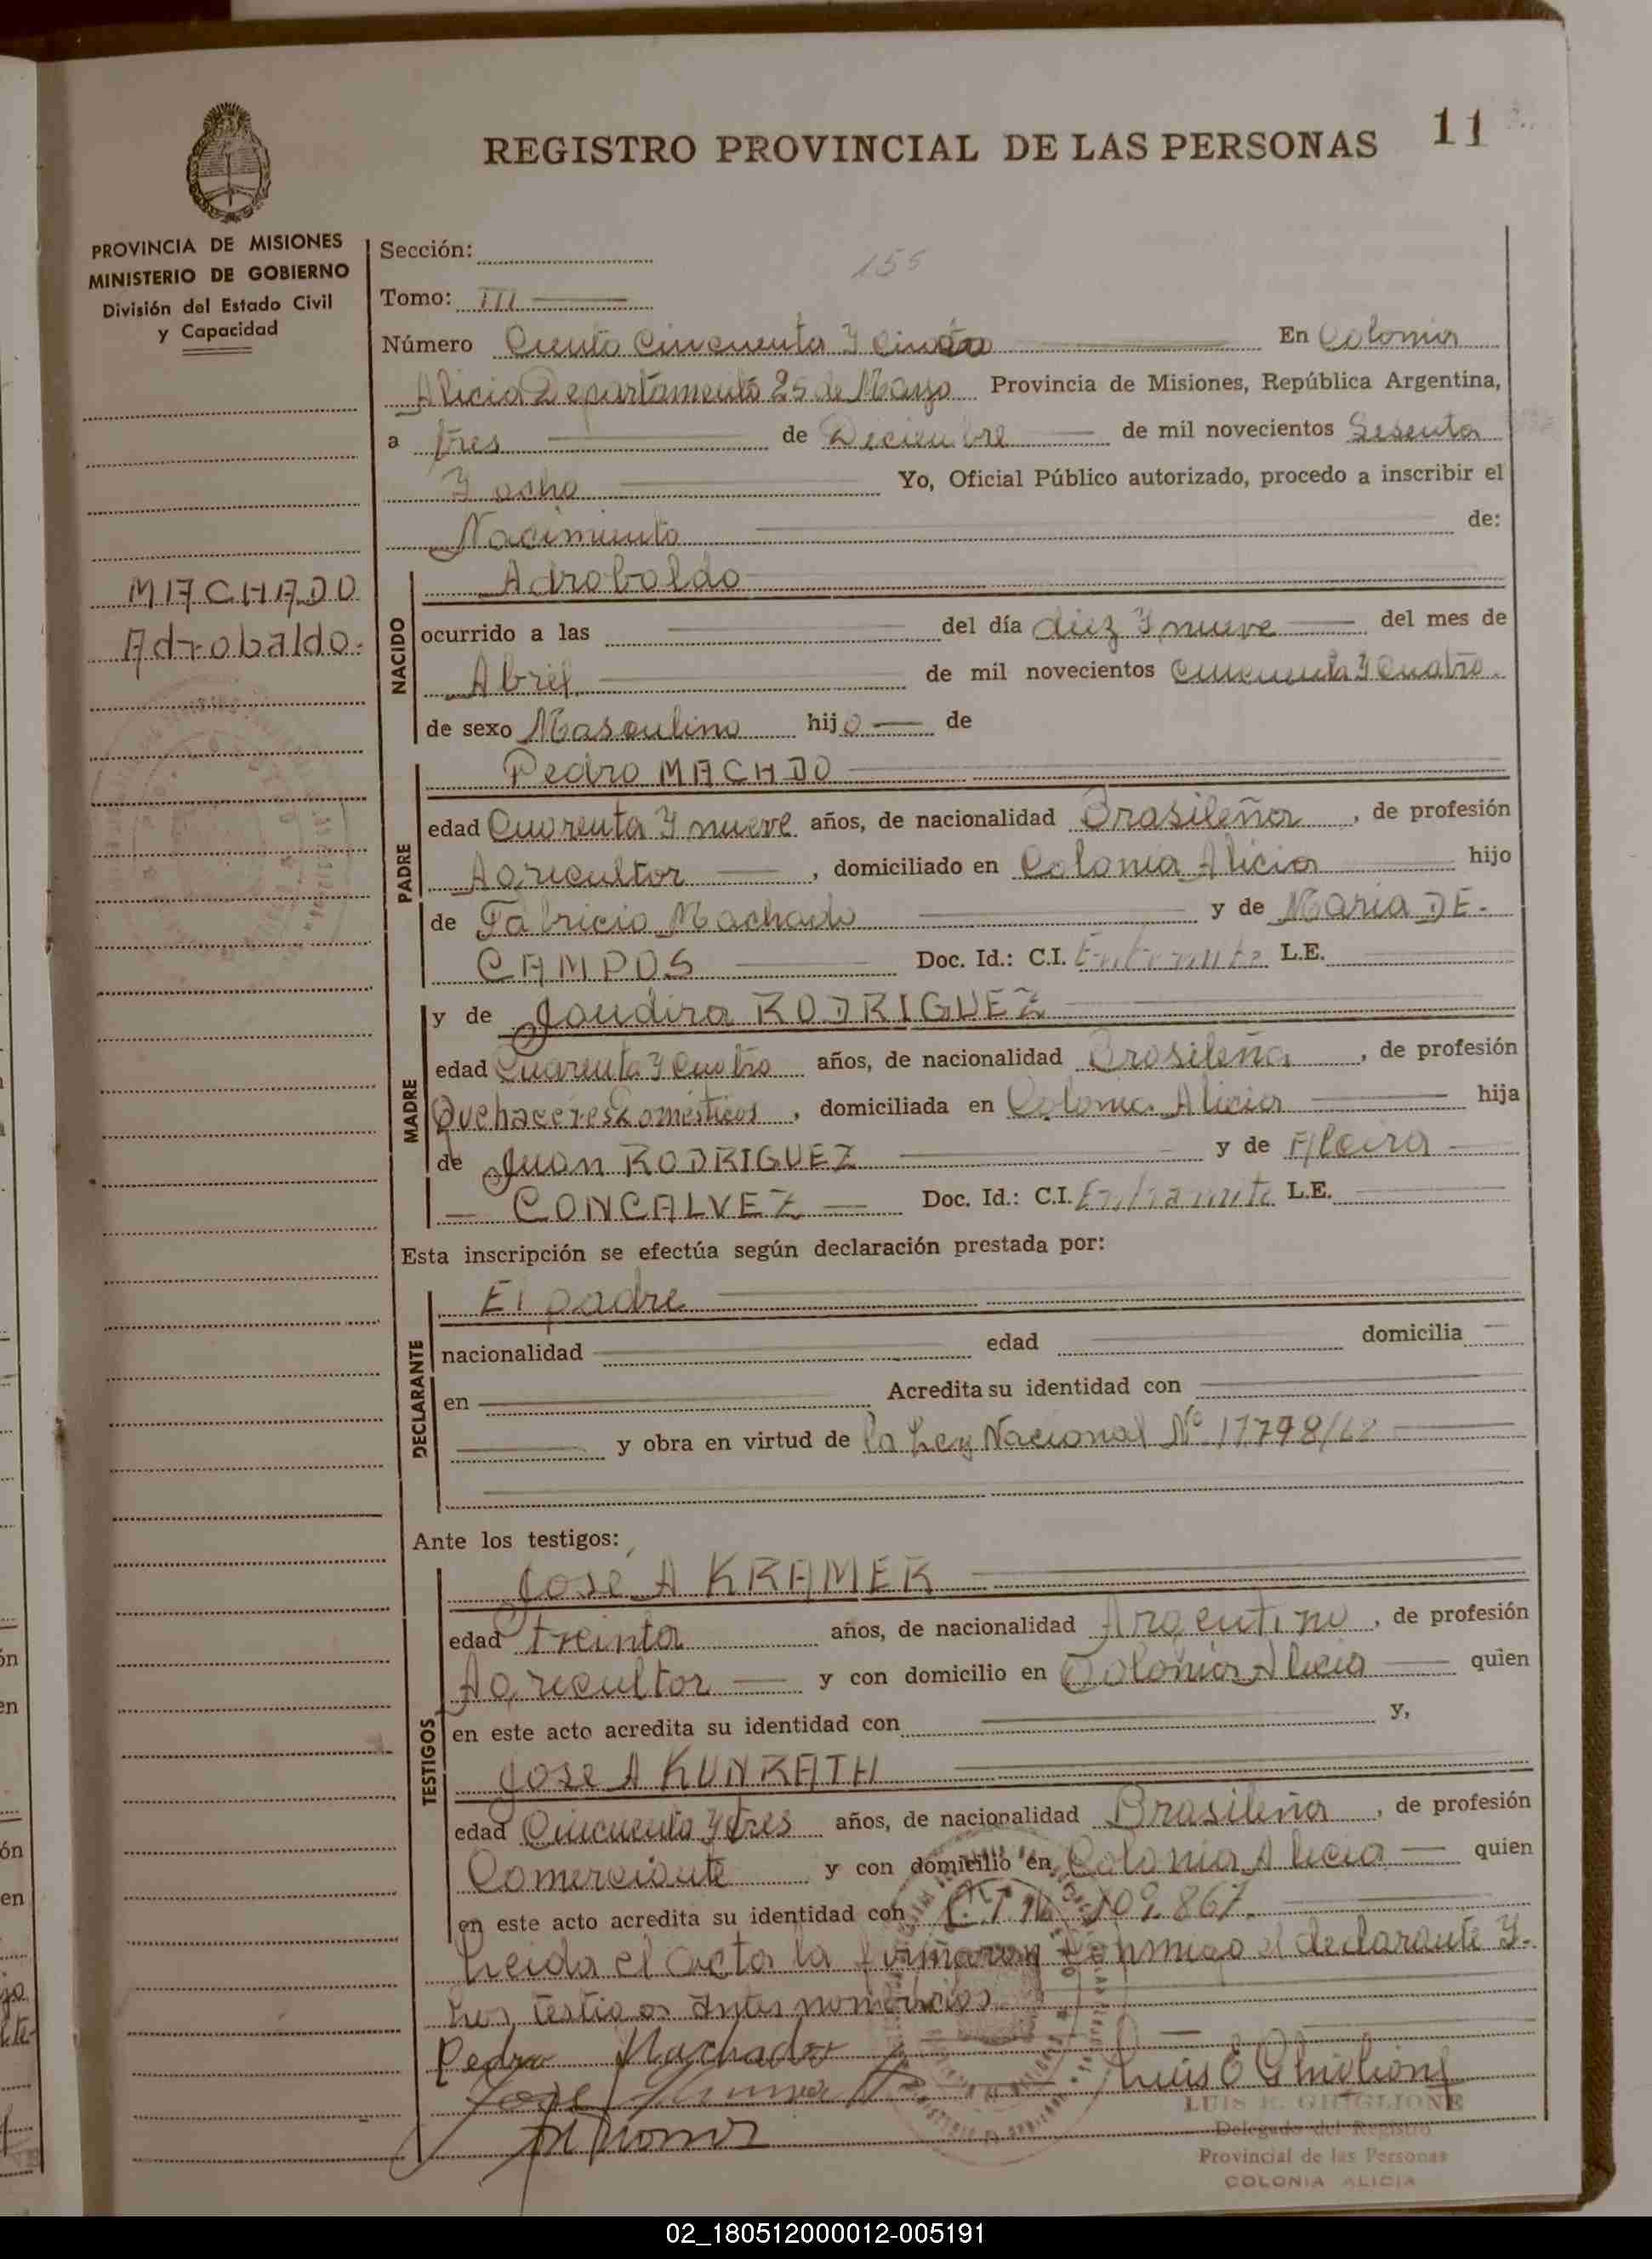 REGISTRO PROVINCIAL DE LAS PERSONAS 11
PROVINCIA DE MISIONES
MINISTERIO DE GOBIERNO
División del Estado Civil
y Capacidad
MACHADO
Adrobaldo.
Sección:
155
Tomo: III
Número Ciento Cincuenta y Cinco En Colonia
Alicia Departamento 25 de Mayo Provincia de Misiones, República Argentina,
a tres de Deciembre de mil novecientos Sesenta
y ocho Yo, Oficial Público autorizado, procedo a inscribir el
Nacimiento de:
NACIDO
Adrobaldo
ocurrido a las del día diez y nueve del mes de
Abril de mil novecientos Cincuenta y Cuatro.
de sexo Masculino hijo de
PADRE
Pedro MACHDO
edad Cuarenta y nueve años, de nacionalidad Brasileña, de profesión
Agricultor, domiciliado en Colonia Alicia hijo
de Fabricio Machado y de Maria DE-
CAMPOS Doc. Id.: C.I. L.E.
MADRE
y de Jandira RODRIGUEZ
edad Cuarenta y Cuatro años, de nacionalidad Brasileña, de profesión
Quehaceres Domésticos, domiciliada en Colonia Alicia hija
de Juan RODRIGUEZ y de Alcira
CONCALVEZ Doc. Id.: C.I. L.E.
Esta inscripción se efectúa según declaración prestada por:
DECLARANTE
El padre
nacionalidad edad domicilia
en Acredita su identidad con
y obra en virtud de la Ley Nacional Nº 17798/68
Ante los testigos:
TESTIGOS
José A KRAMER
edad treinta años, de nacionalidad Argentino, de profesión
Agricultor y con domicilio en Colonia Alicia quien
en este acto acredita su identidad con y,
José A KUNRATH
edad Cincuenta y tres años, de nacionalidad Brasileña, de profesión
Comerciante y con domicilio en Colonia Alicia quien
en este acto acredita su identidad con C.I. Nº 109.867.
Leida el acta la firmaron conmigo el declarante y-
los testigos antes nombrados
Pedro Machado
José
Luis E Ghiglione
LUIS E. GHIGLIONE
Delegado del Registro
Provincial de las Personas
COLONIA ALICIA
02_180512000012-005191